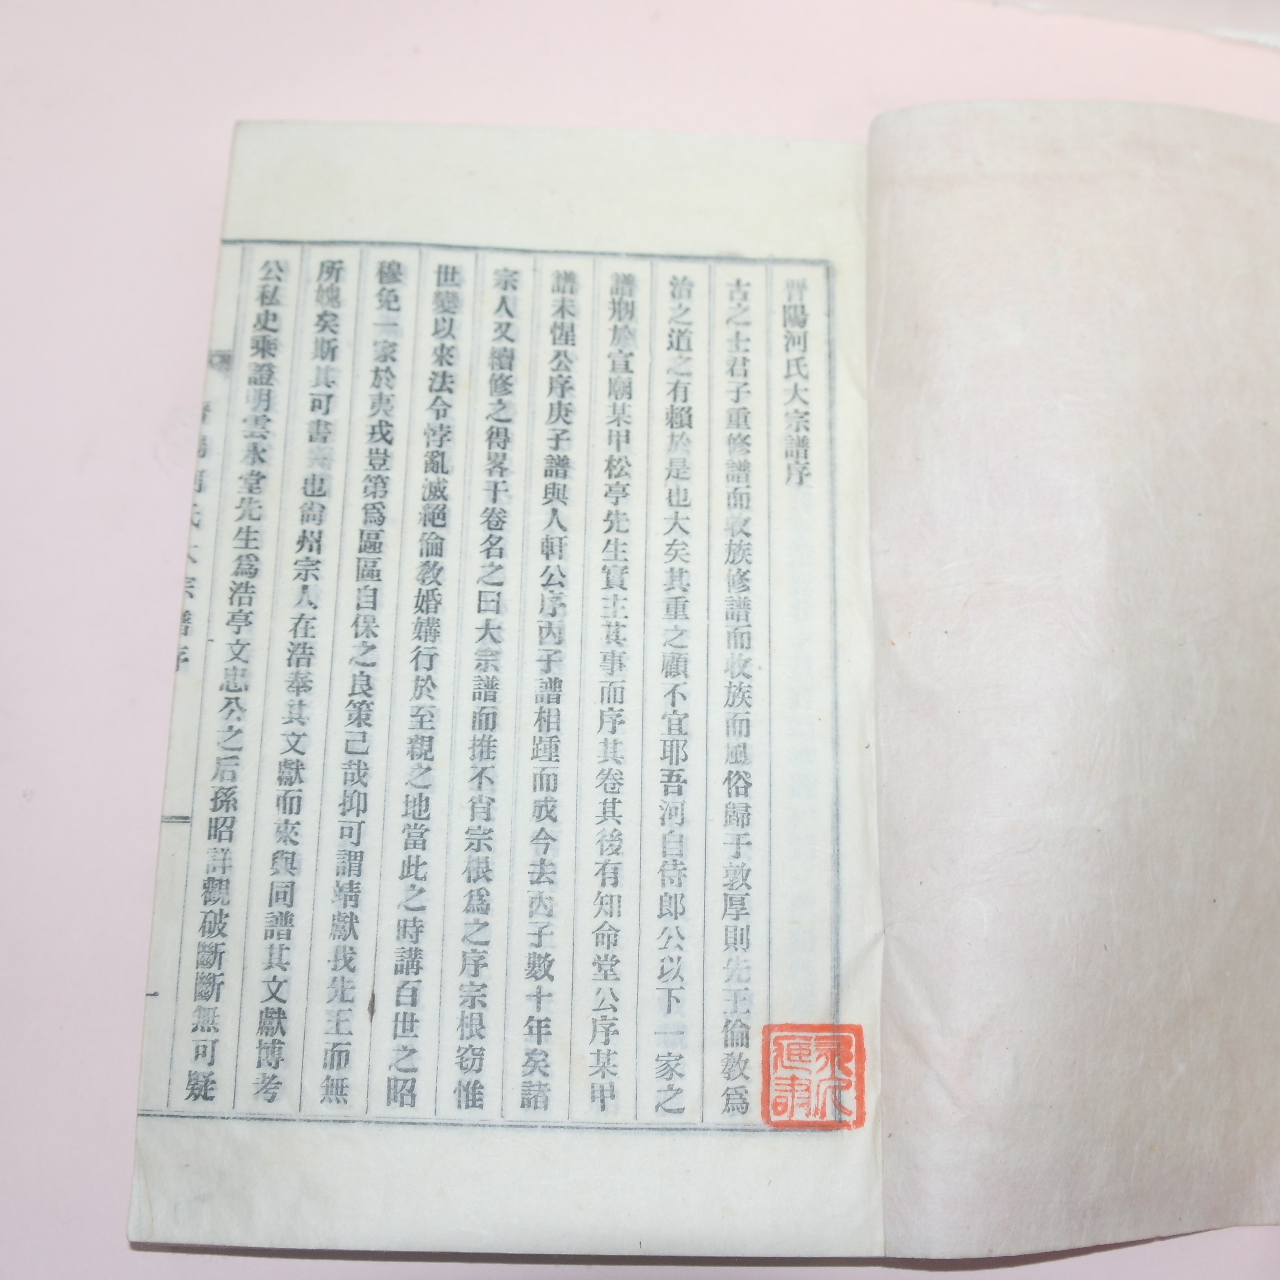 晉陽河氏大宗譜序
古之士君子重修譜而收族修譜而收族而風俗歸于敦厚則先王倫敎爲
治之道之有賴於是也大矣其重之顧不宜耶吾河自侍郎公以下一家之
譜刱於宣廟某甲松亭先生實主其事而序其卷其後有知命堂公序某甲
譜未惺公序庚子譜與人軒公序丙子譜相踵而成今去丙子數十年矣諸
宗人又續修之得畧干卷名之曰大宗譜而推不肖宗根爲之序宗根窃惟
世變以來法令悖亂滅絕倫敎婚媾行於至親之地當此之時講百世之昭
穆免一家於夷戎豈第爲區區自保之良策己哉抑可謂靖獻我先王而無
所媿矣斯其可書也尙州宗人在浩奉其文獻而來與同譜其文獻博考
公私史乘證明雲永堂先生爲浩亭文忠公之后孫昭詳觀破斷斷無可疑
晉陽河氏大宗譜序
一